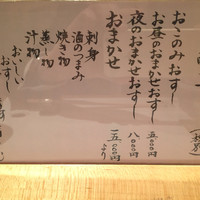 おこのみおすし
お昼のおまかせおすし 五、〇〇〇円
夜のおまかせおすし 八、〇〇〇円
おまかせ 一五、〇〇〇円より
刺身
酒のつまみ
焼き物
蒸し物
汁物
おいしい
おすし